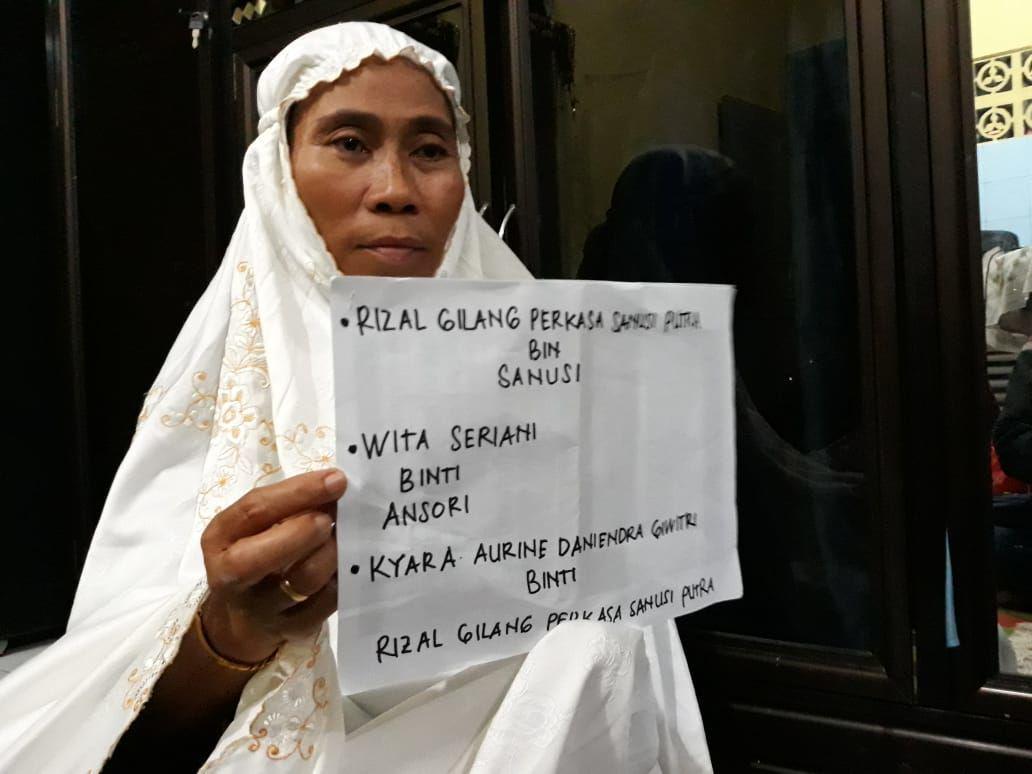 • RIZAL GILANG PERKASA SANUSI PUTRA
BIN
SANUSI
• WITA SERIANI
BINTI
ANSORI
• KYARA AURINE DANIENDRA GIWITRI
BINTI
RIZAL GILANG PERKASA SANUSI PUTRA